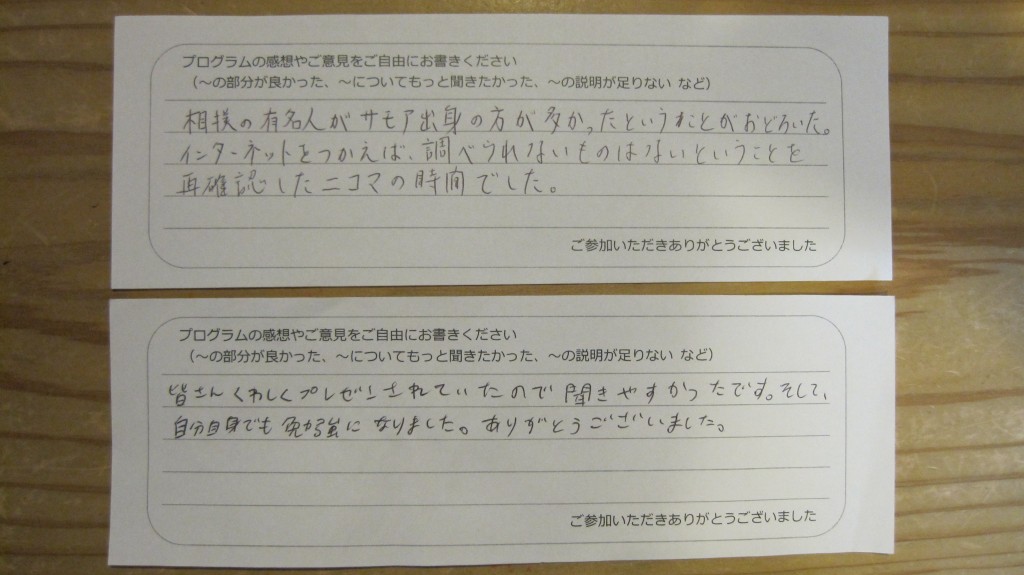 プログラムの感想やご意見をご自由にお書きください
(～の部分が良かった、～についてもっと聞きたかった、～の説明が足りない など)
相撲の有名人がサモア出身の方が多かったということがおどろいた。
インターネットをつかえば、調べられないものはないということを
再確認した二コマの時間でした。
ご参加いただきありがとうございました
プログラムの感想やご意見をご自由にお書きください
(～の部分が良かった、～についてもっと聞きたかった、～の説明が足りない など)
皆さんくわしくプレゼンされていたので聞きやすかったです。そして、
自分自身でも勉強になりました。ありがとうございました。
ご参加いただきありがとうございました